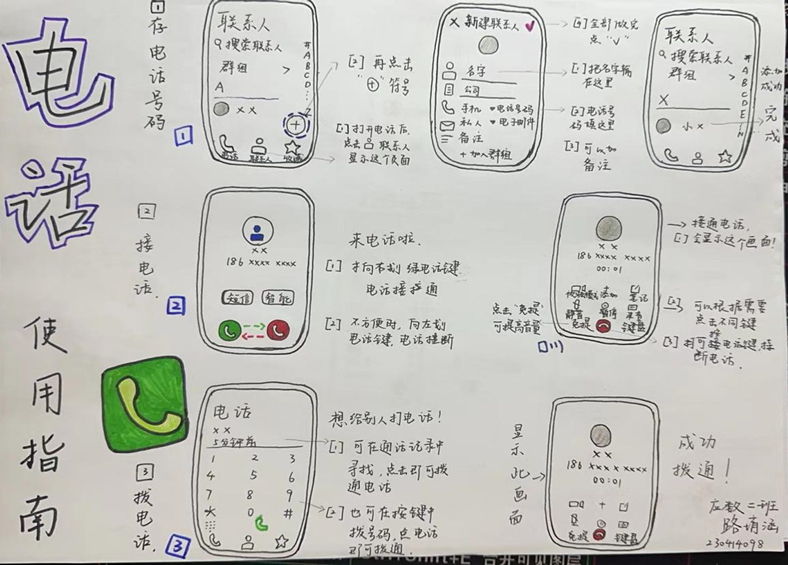 电话
使用指南
1
存电话号码
1
联系人
搜索联系人
群组 >
A
XX
#
A
B
C
D
Z
+
电话
联系人
收藏
[2] 再点击
"+" 符号
[1] 打开电话后,
点击 联系人
显示这个页面
X 新建联系人 ✓
名字
公司
手机 电话号码
私人 电子邮件
备注
+ 加入群组
[5] 全部做完
点"√"
[1] 把名字输
在这里
[2] 电话号
码填这里
[3] 可以加
备注
联系人
搜索联系人
群组 >
X
小X
#
A
B
C
D
E
添加
成功
完
成
2
接电话
2
XX
186 xxxx xxxx
短信
来电话啦.
[1] 电话接通
[2] 不方便时, 向左划
电话键, 电话挂断
XX
186 xxxx xxxx
00:01
添加
笔记
静音
暂停
免提
键盘
点击"免提"
可提高音量
→ 接通电话,
[1] 会显示这个画面!
[2] 可以根据需要
点击不同键
[3] 断电话.
3
拨电话
3
电话
XX
5分钟前
1 2 3
4 5 6
7 8 9
* 0 #
想给别人打电话!
[1] 可在通话记录中
寻找, 点击即可拨
通电话
[2] 也可在按键中
拨号码, 点电话
即可拨通.
显示此画面
XX
186 xxxx xxxx
00:01
免提
键盘
成功
拨通!
应数二班
230414098